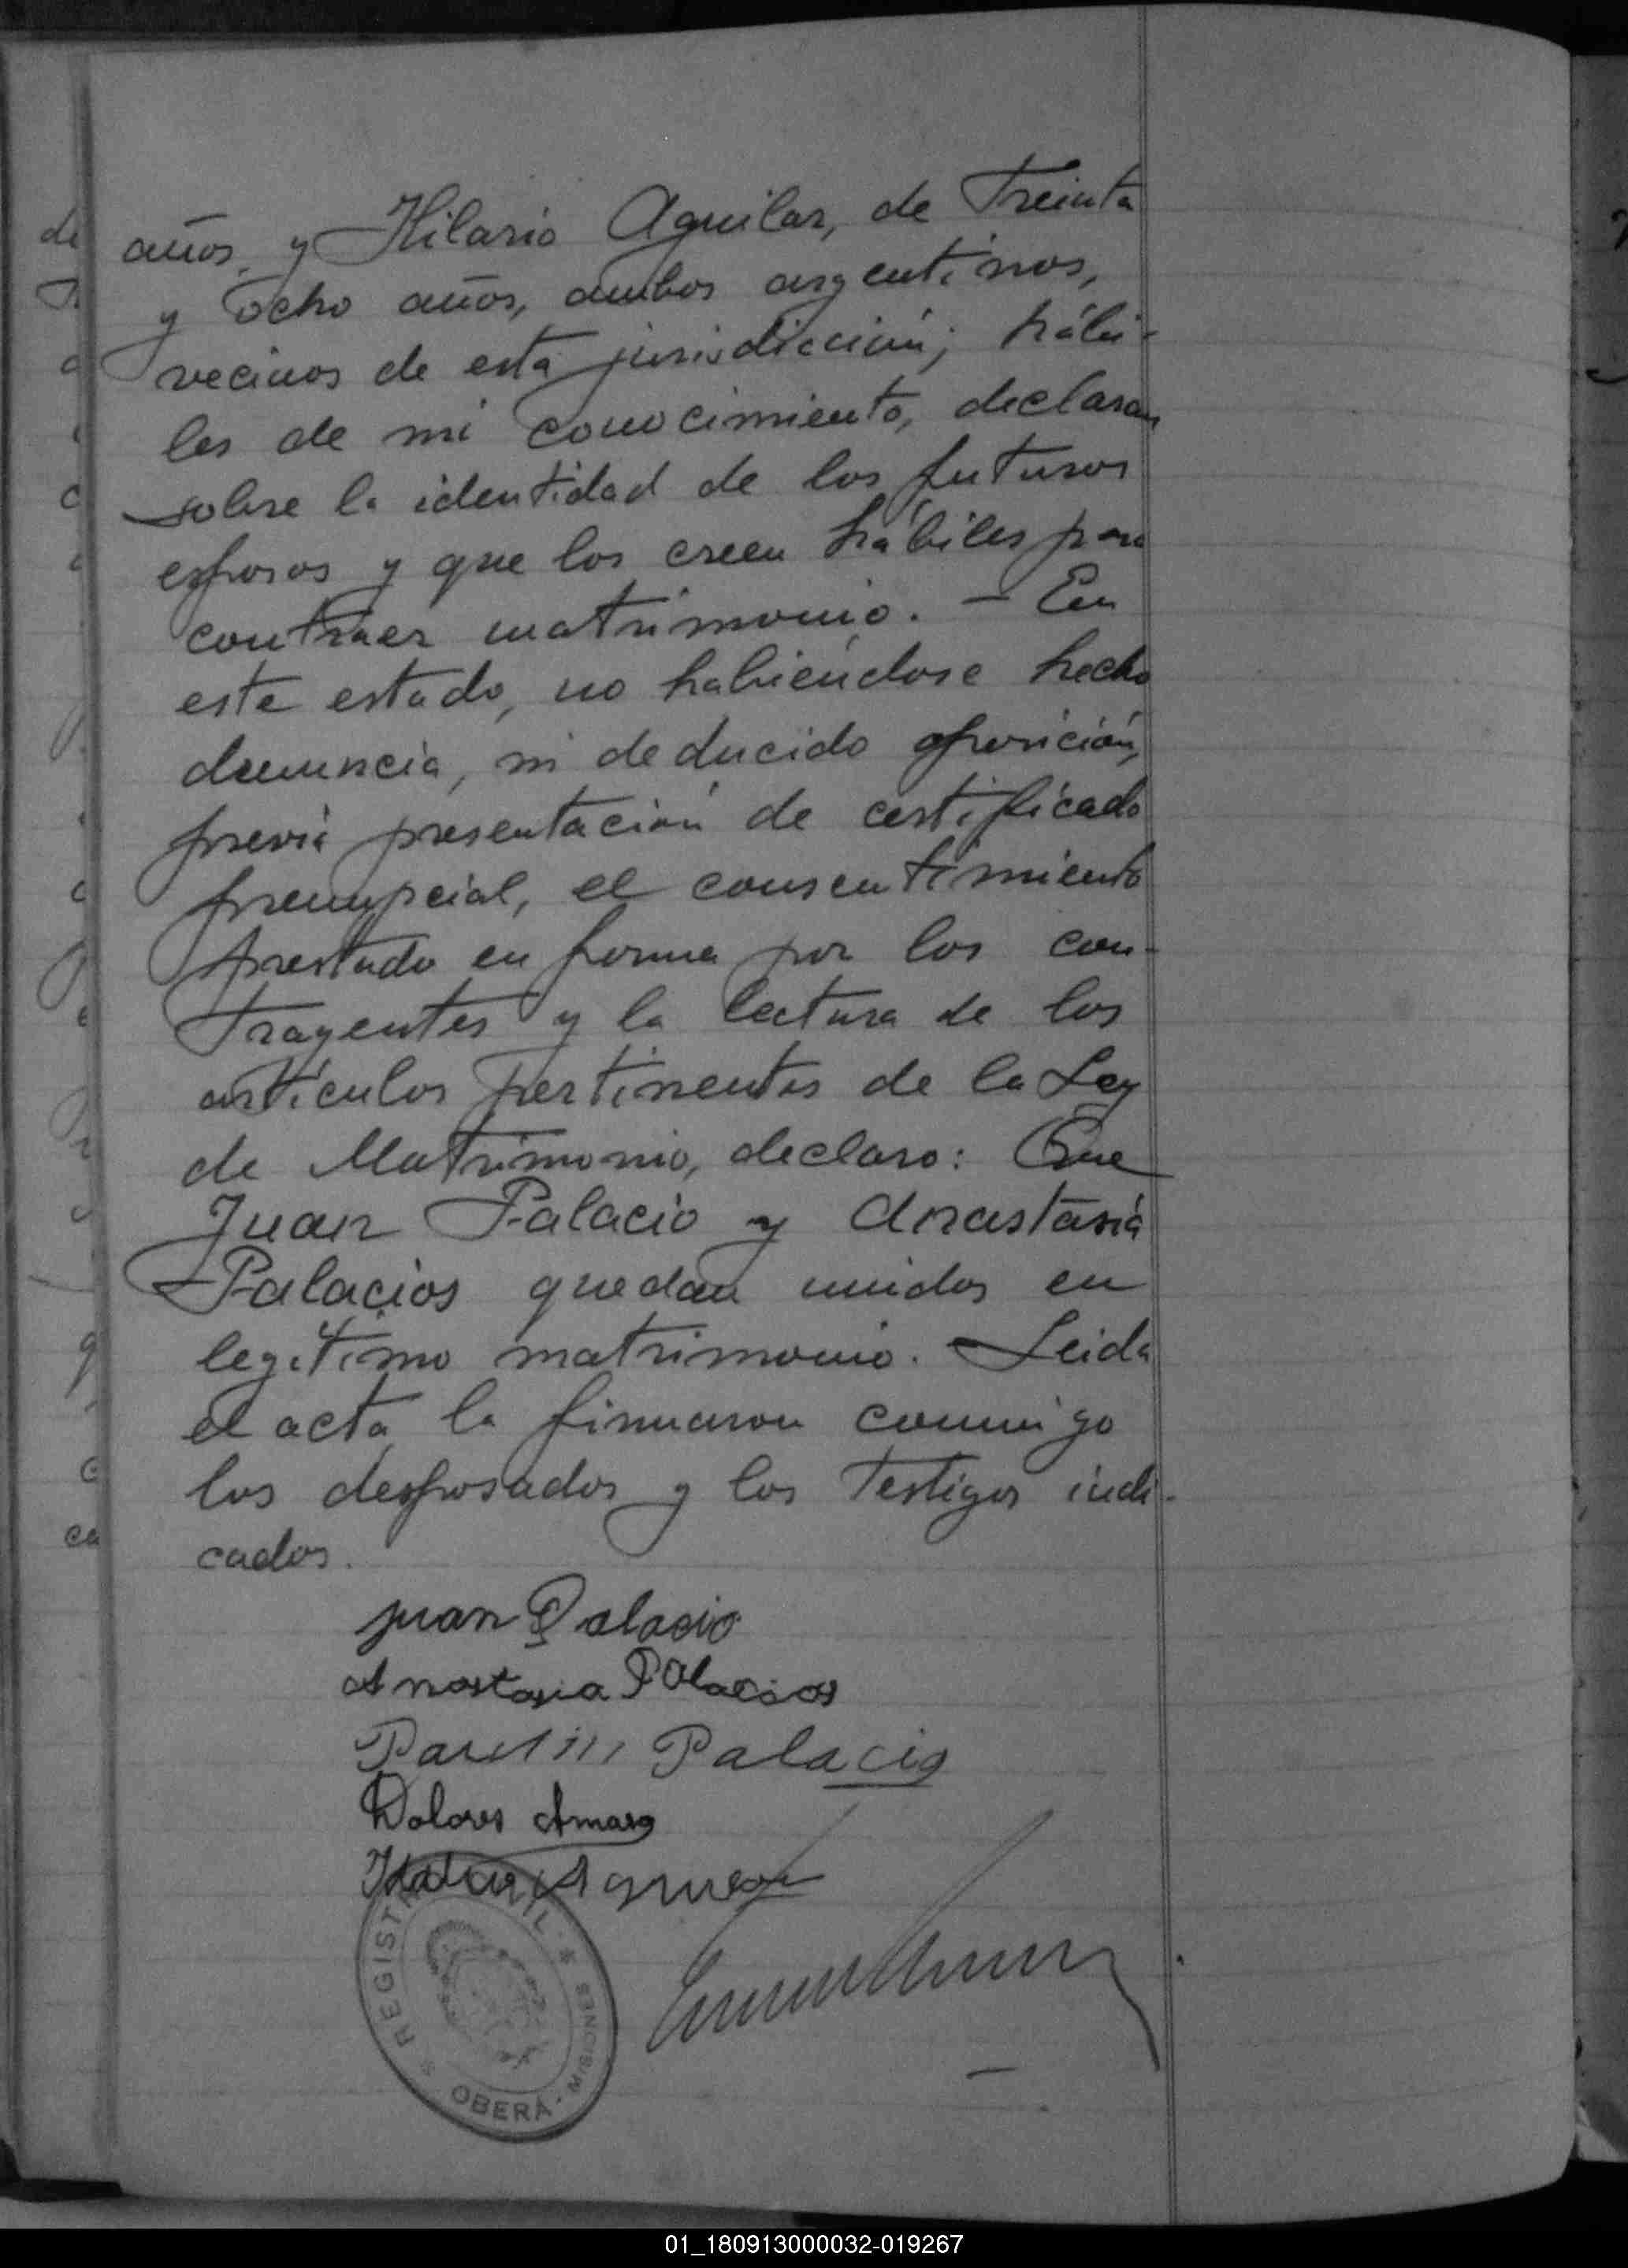 años, y Hilario Aguilar, de Treinta
y ocho años, ambos argentinos,
vecinos de esta jurisdicción; hábi-
les de mi conocimiento, declaran
sobre la identidad de los futuros
esposos y que los creen hábiles para
contraer matrimonio. - En
este estado, no habiéndose hecho
denuncia, ni deducido oposición,
previa presentación de certificado
prenupcial, el consentimiento
prestado en forma por los con-
trayentes y la lectura de los
artículos pertinentes de la Ley
de Matrimonio, declaro: Que
Juan Palacio y Anastasia
Palacios quedan unidos en
legítimo matrimonio. Leida
el acta, la firmaron conmigo
los desposados y los Testigos indi-
cados.
Juan Palacio
Anastasia Palacios
Palacio
Dolores Amaro
REGISTRO CIVIL
OBERÁ - MISIONES
01_180913000032-019267